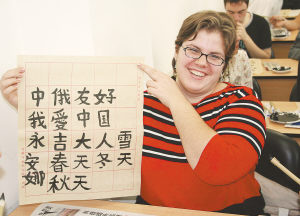 中俄友好
我愛中国
永吉大人雪
安春天冬天
娜秋天